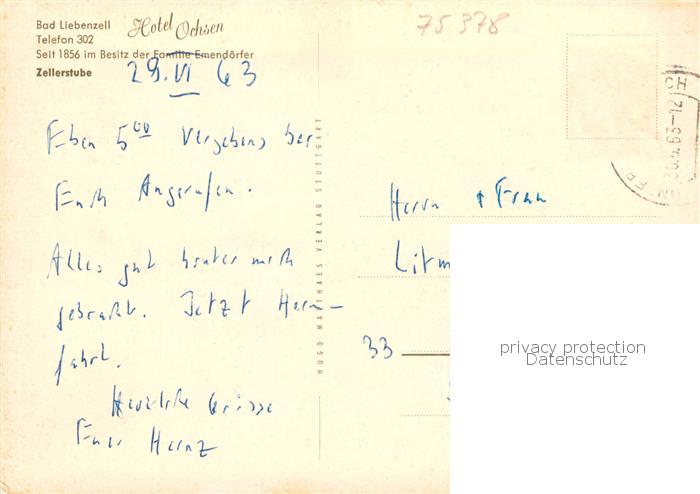 Bad Liebenzell
Hotel Ochsen
Telefon 302
Seit 1856 im Besitz der Familie Emendörfer
Zellerstube
75378
29. VI 63
Eben 5 00 Vergebens bei
Euch Angerufen.
Alles gut hinter mich
gebracht. Jetzt Heim-
fahrt.
Herzliche Grüsse
Euer Heinz
HUGO MATTHAES VERLAG STUTTGART
Herrn + Frau
Litm
33
privacy protection
Datenschutz